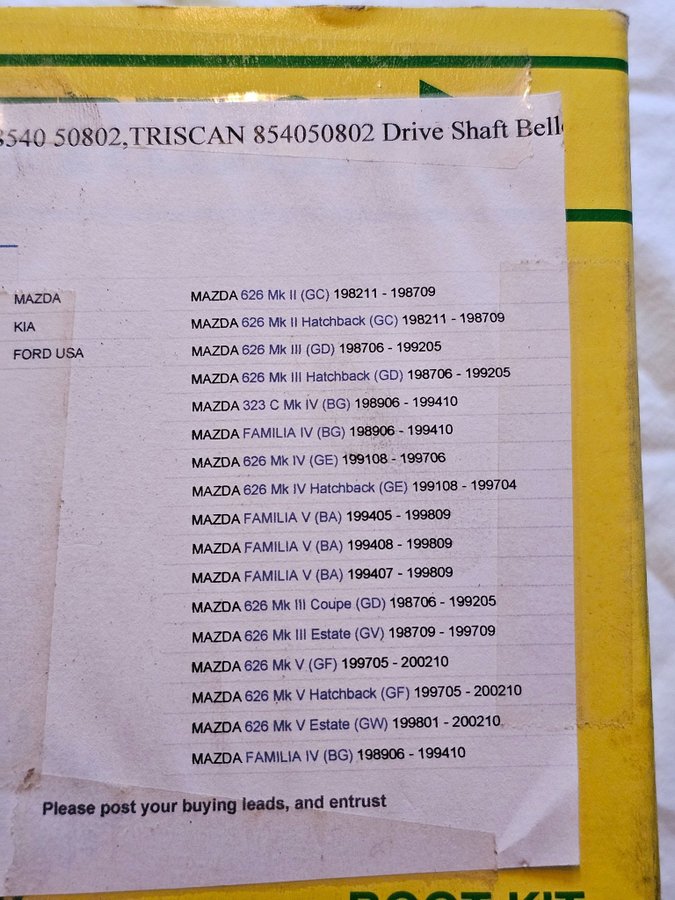 8540 50802,TRISCAN 854050802 Drive Shaft Bell
MAZDA
KIA
FORD USA
MAZDA 626 Mk II (GC) 198211 - 198709
MAZDA 626 Mk II Hatchback (GC) 198211 - 198709
MAZDA 626 Mk III (GD) 198706 - 199205
MAZDA 626 Mk III Hatchback (GD) 198706 - 199205
MAZDA 323 C Mk IV (BG) 198906 - 199410
MAZDA FAMILIA IV (BG) 198906 - 199410
MAZDA 626 Mk IV (GE) 199108 - 199706
MAZDA 626 Mk IV Hatchback (GE) 199108 - 199704
MAZDA FAMILIA V (BA) 199405 - 199809
MAZDA FAMILIA V (BA) 199408 - 199809
MAZDA FAMILIA V (BA) 199407 - 199809
MAZDA 626 Mk III Coupe (GD) 198706 - 199205
MAZDA 626 Mk III Estate (GV) 198709 - 199709
MAZDA 626 Mk V (GF) 199705 - 200210
MAZDA 626 Mk V Hatchback (GF) 199705 - 200210
MAZDA 626 Mk V Estate (GW) 199801 - 200210
MAZDA FAMILIA IV (BG) 198906 - 199410
Please post your buying leads, and entrust
BOOT KIT